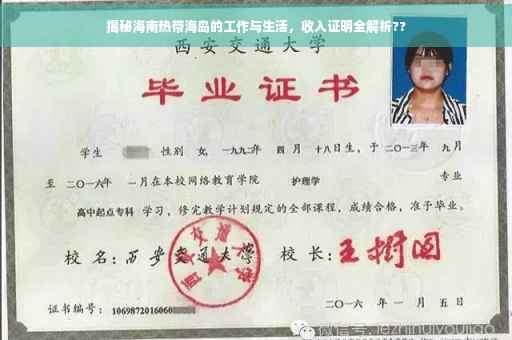 揭秘海南热带海岛的工作与生活，收入证明全解析??
西安交通大学
毕业证书
学生 性别 女，一九九二年 四月 十八日生，于二〇一三年 九月
至 二〇一六年 一月在本校网络教育学院 护理学 专业
高中起点专科 学习，修完教学计划规定的全部课程，成绩合格，准予毕业。
校名：西安交通大学 校长：王树国
证书编号：1069872016060
二〇一六年一月五日
微信号: jezhihuiyoujiao